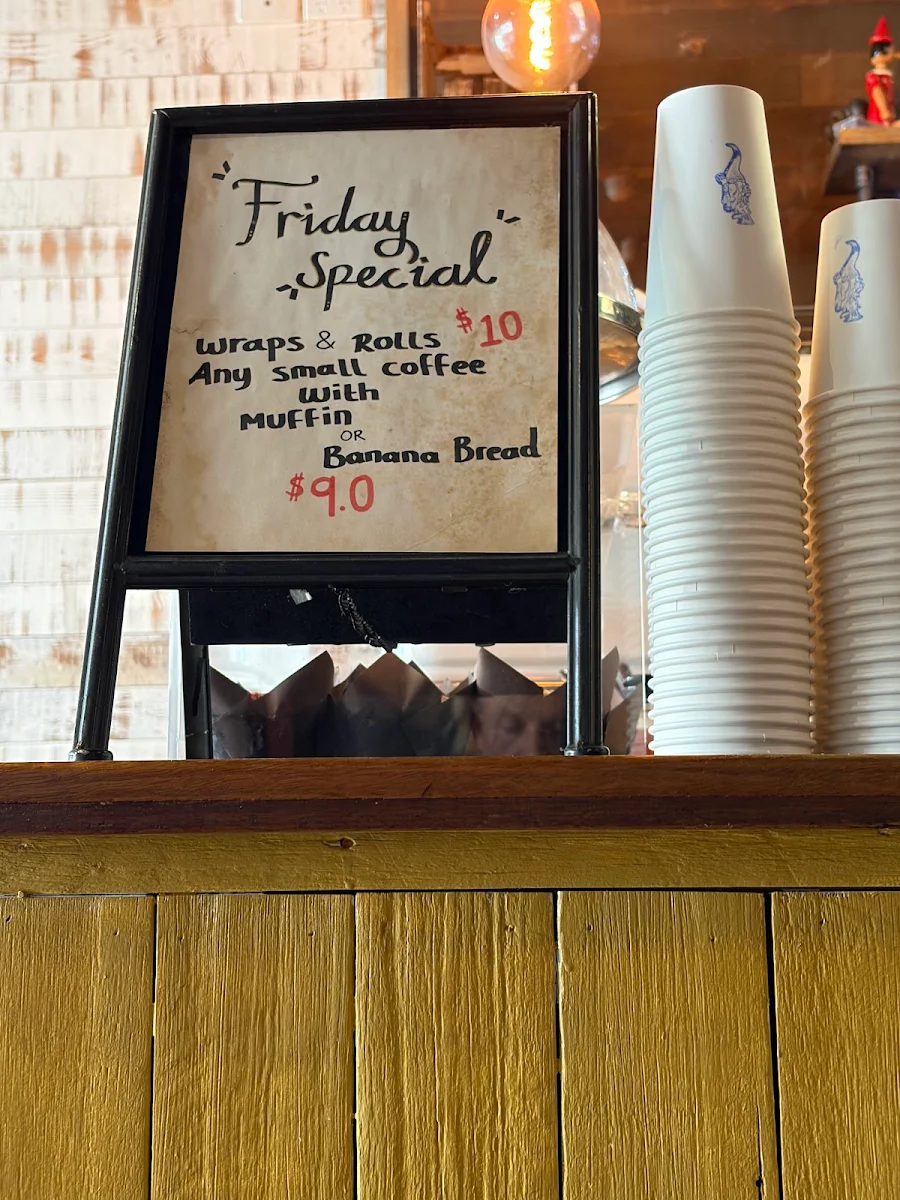 Friday
Special
Wraps & Rolls $10
Any small coffee
With
Muffin
OR
Banana Bread
$9.0